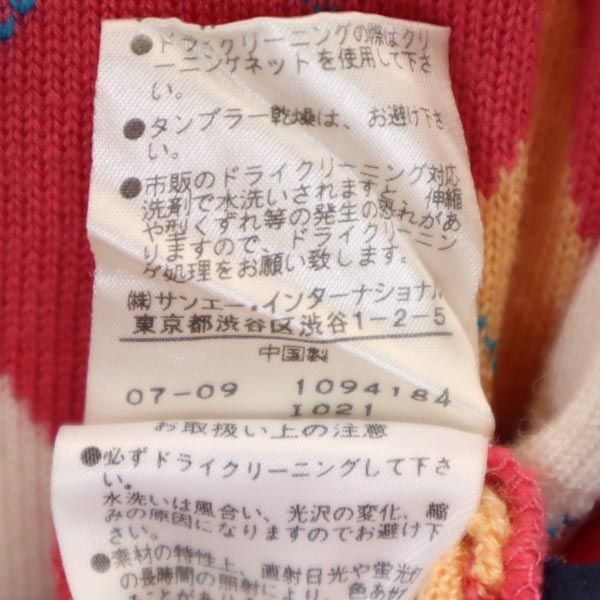 ●ドライクリーニングの際はクリ
ーニングネットを使用して下さ
い。
●タンブラー乾燥は、お避け下さ
い。
●市販のドライクリーニング対応
洗剤で水洗いされますと、伸縮
や型くずれ等の発生の恐れがあ
りますので、ドライクリーニン
グ処理をお願い致します。
㈱サンエー・インターナショナル
東京都渋谷区渋谷1-2-5
中国製
07-09 1094184
I021
お取扱い上の注意
●必ずドライクリーニングして下さ
い。
水洗いは風合い、光沢の変化、縮
みの原因になりますのでお避け下
さい。
●素材の特性上、直射日光や蛍光灯
の長時間の照射により、色あせ
ることがあり